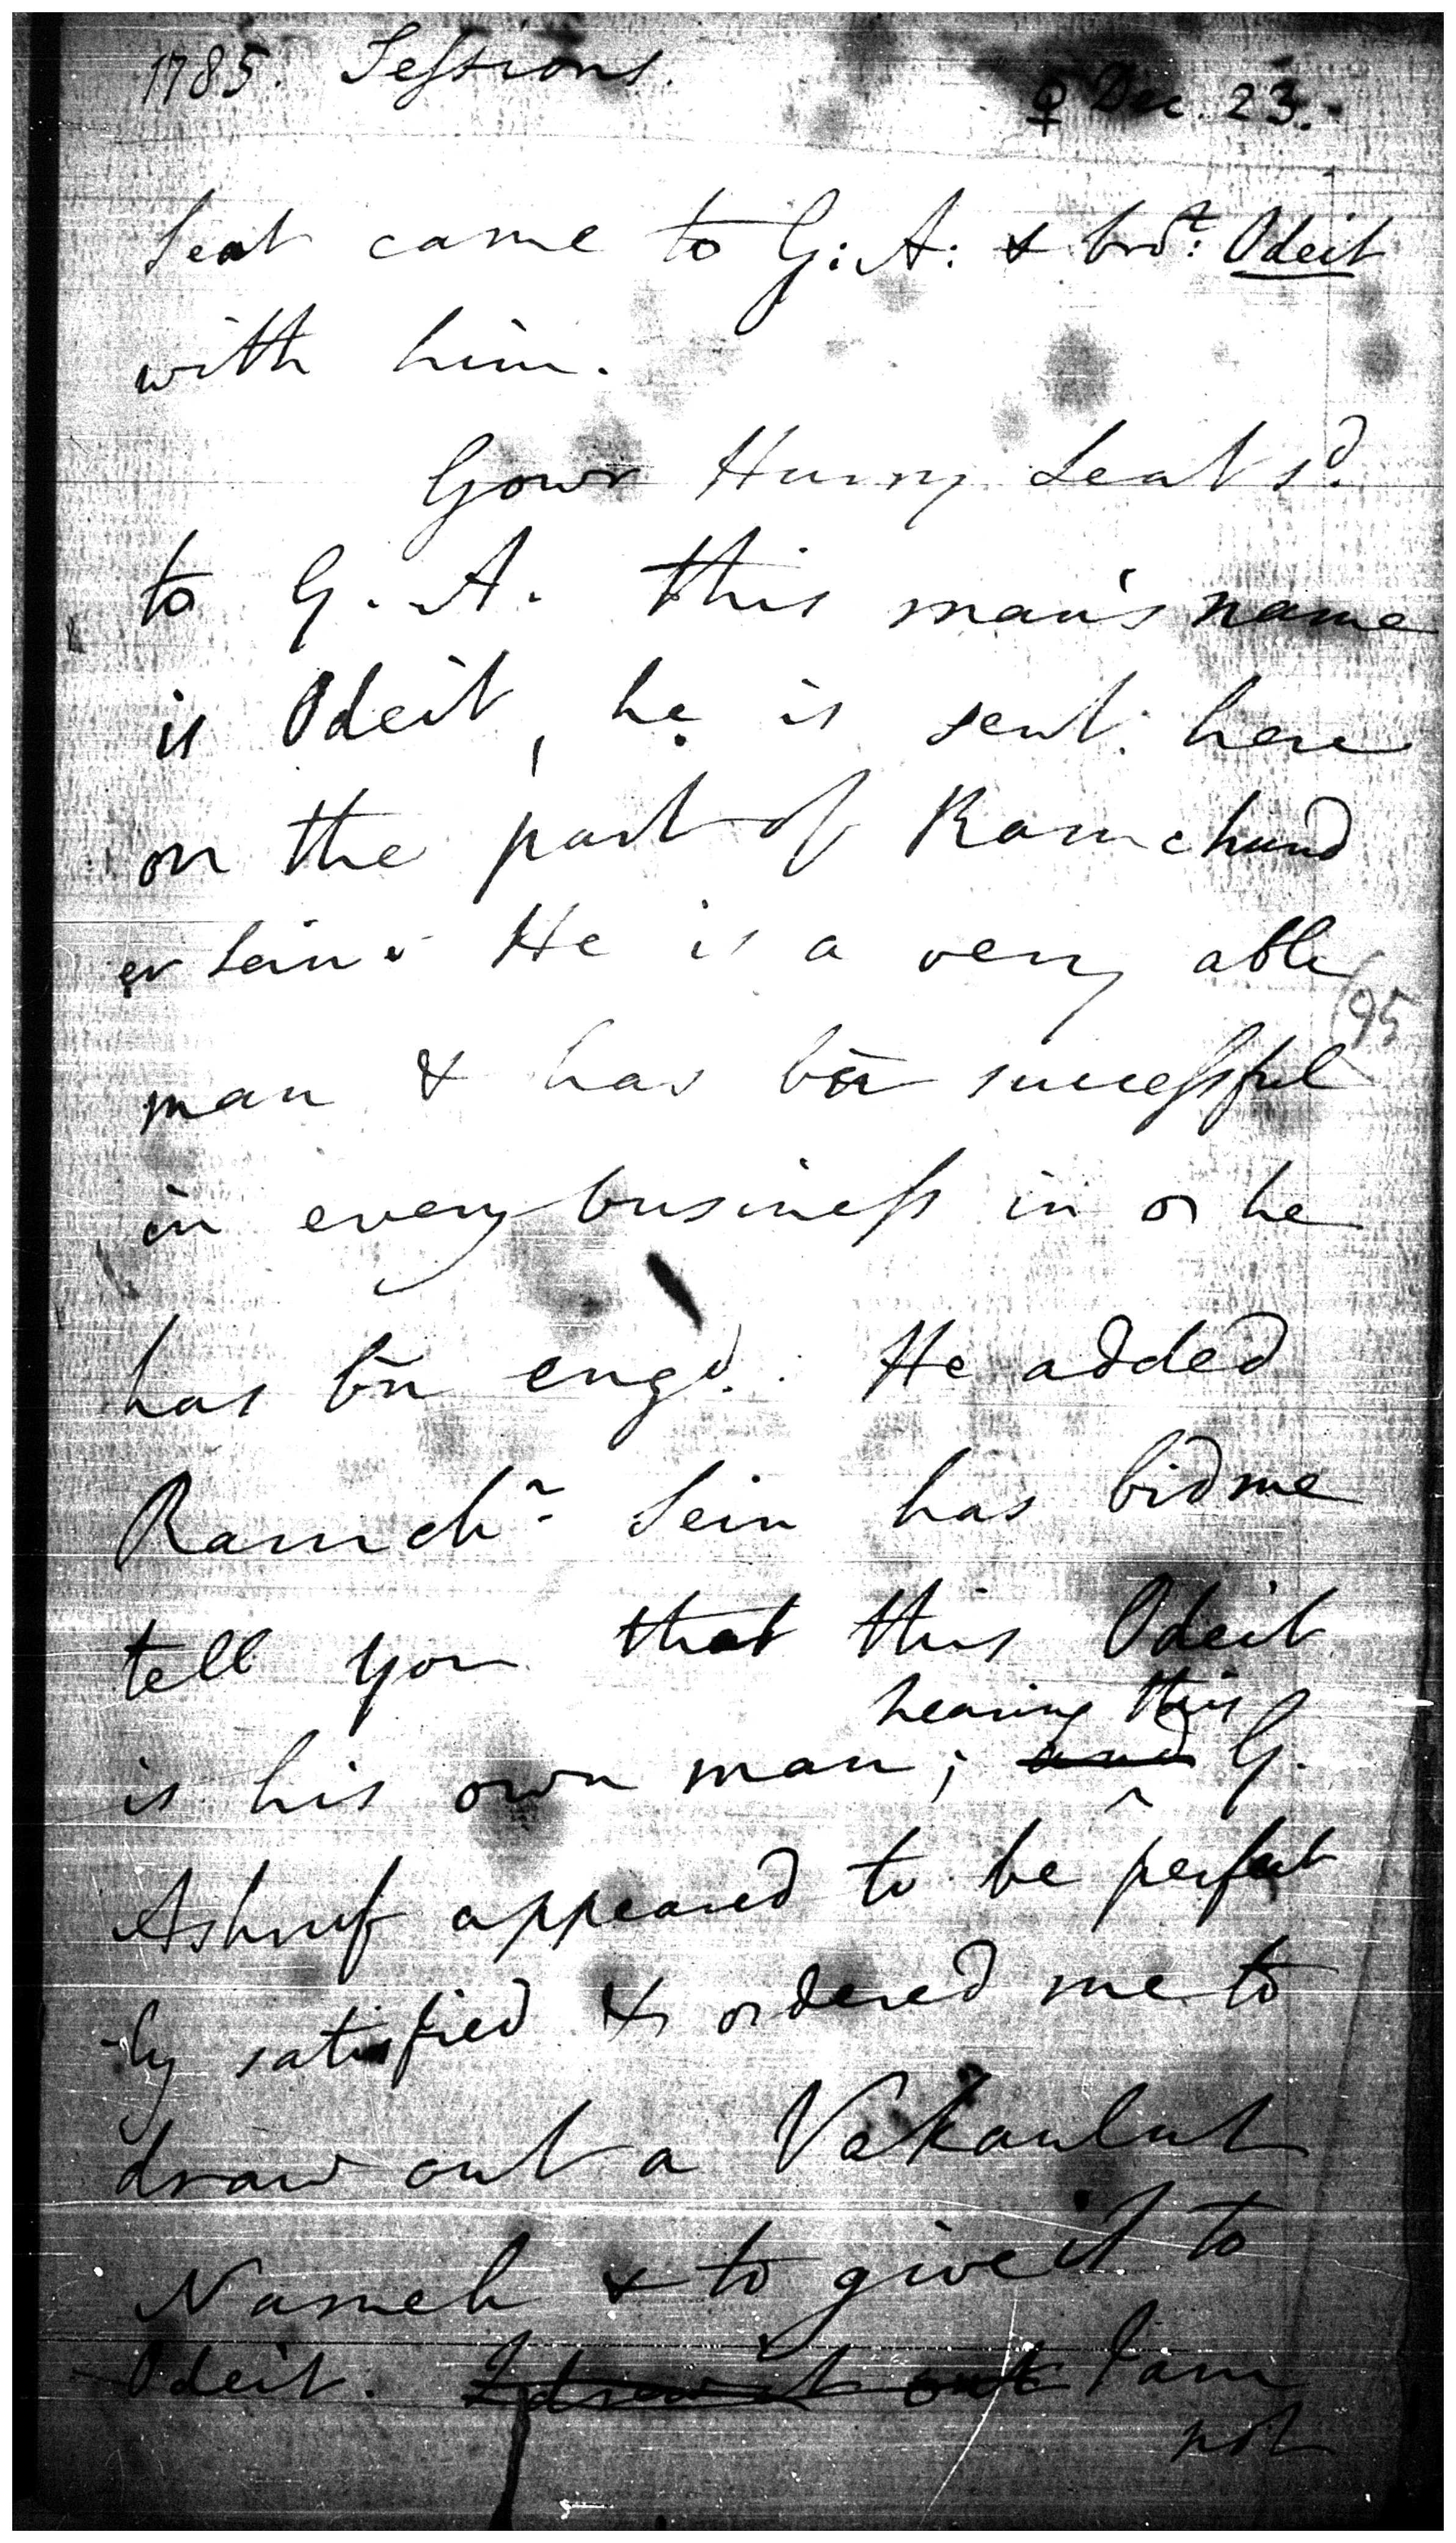 1785. Sessions.
♀ Dec. 23.
Seat came to G: A: & bro.t Odeit
with him.
Gowr Hurry Seat s.d
to G. A. this man's name
is Odeit, he is sent here
on the part of Ramchund
er Sein. He is a very able
95
man & has bn successful
in every business in w he
has bn engd. He added
Ramch.r Sein has bid me
tell you that this Odeit
hearing this
is his own man; and G.
Ashruf appeared to be perfect
-ly satisfied & ordered me to
draw out a Vakaulut
Nameh & to give it to
Odeit. I drew it out I am
not